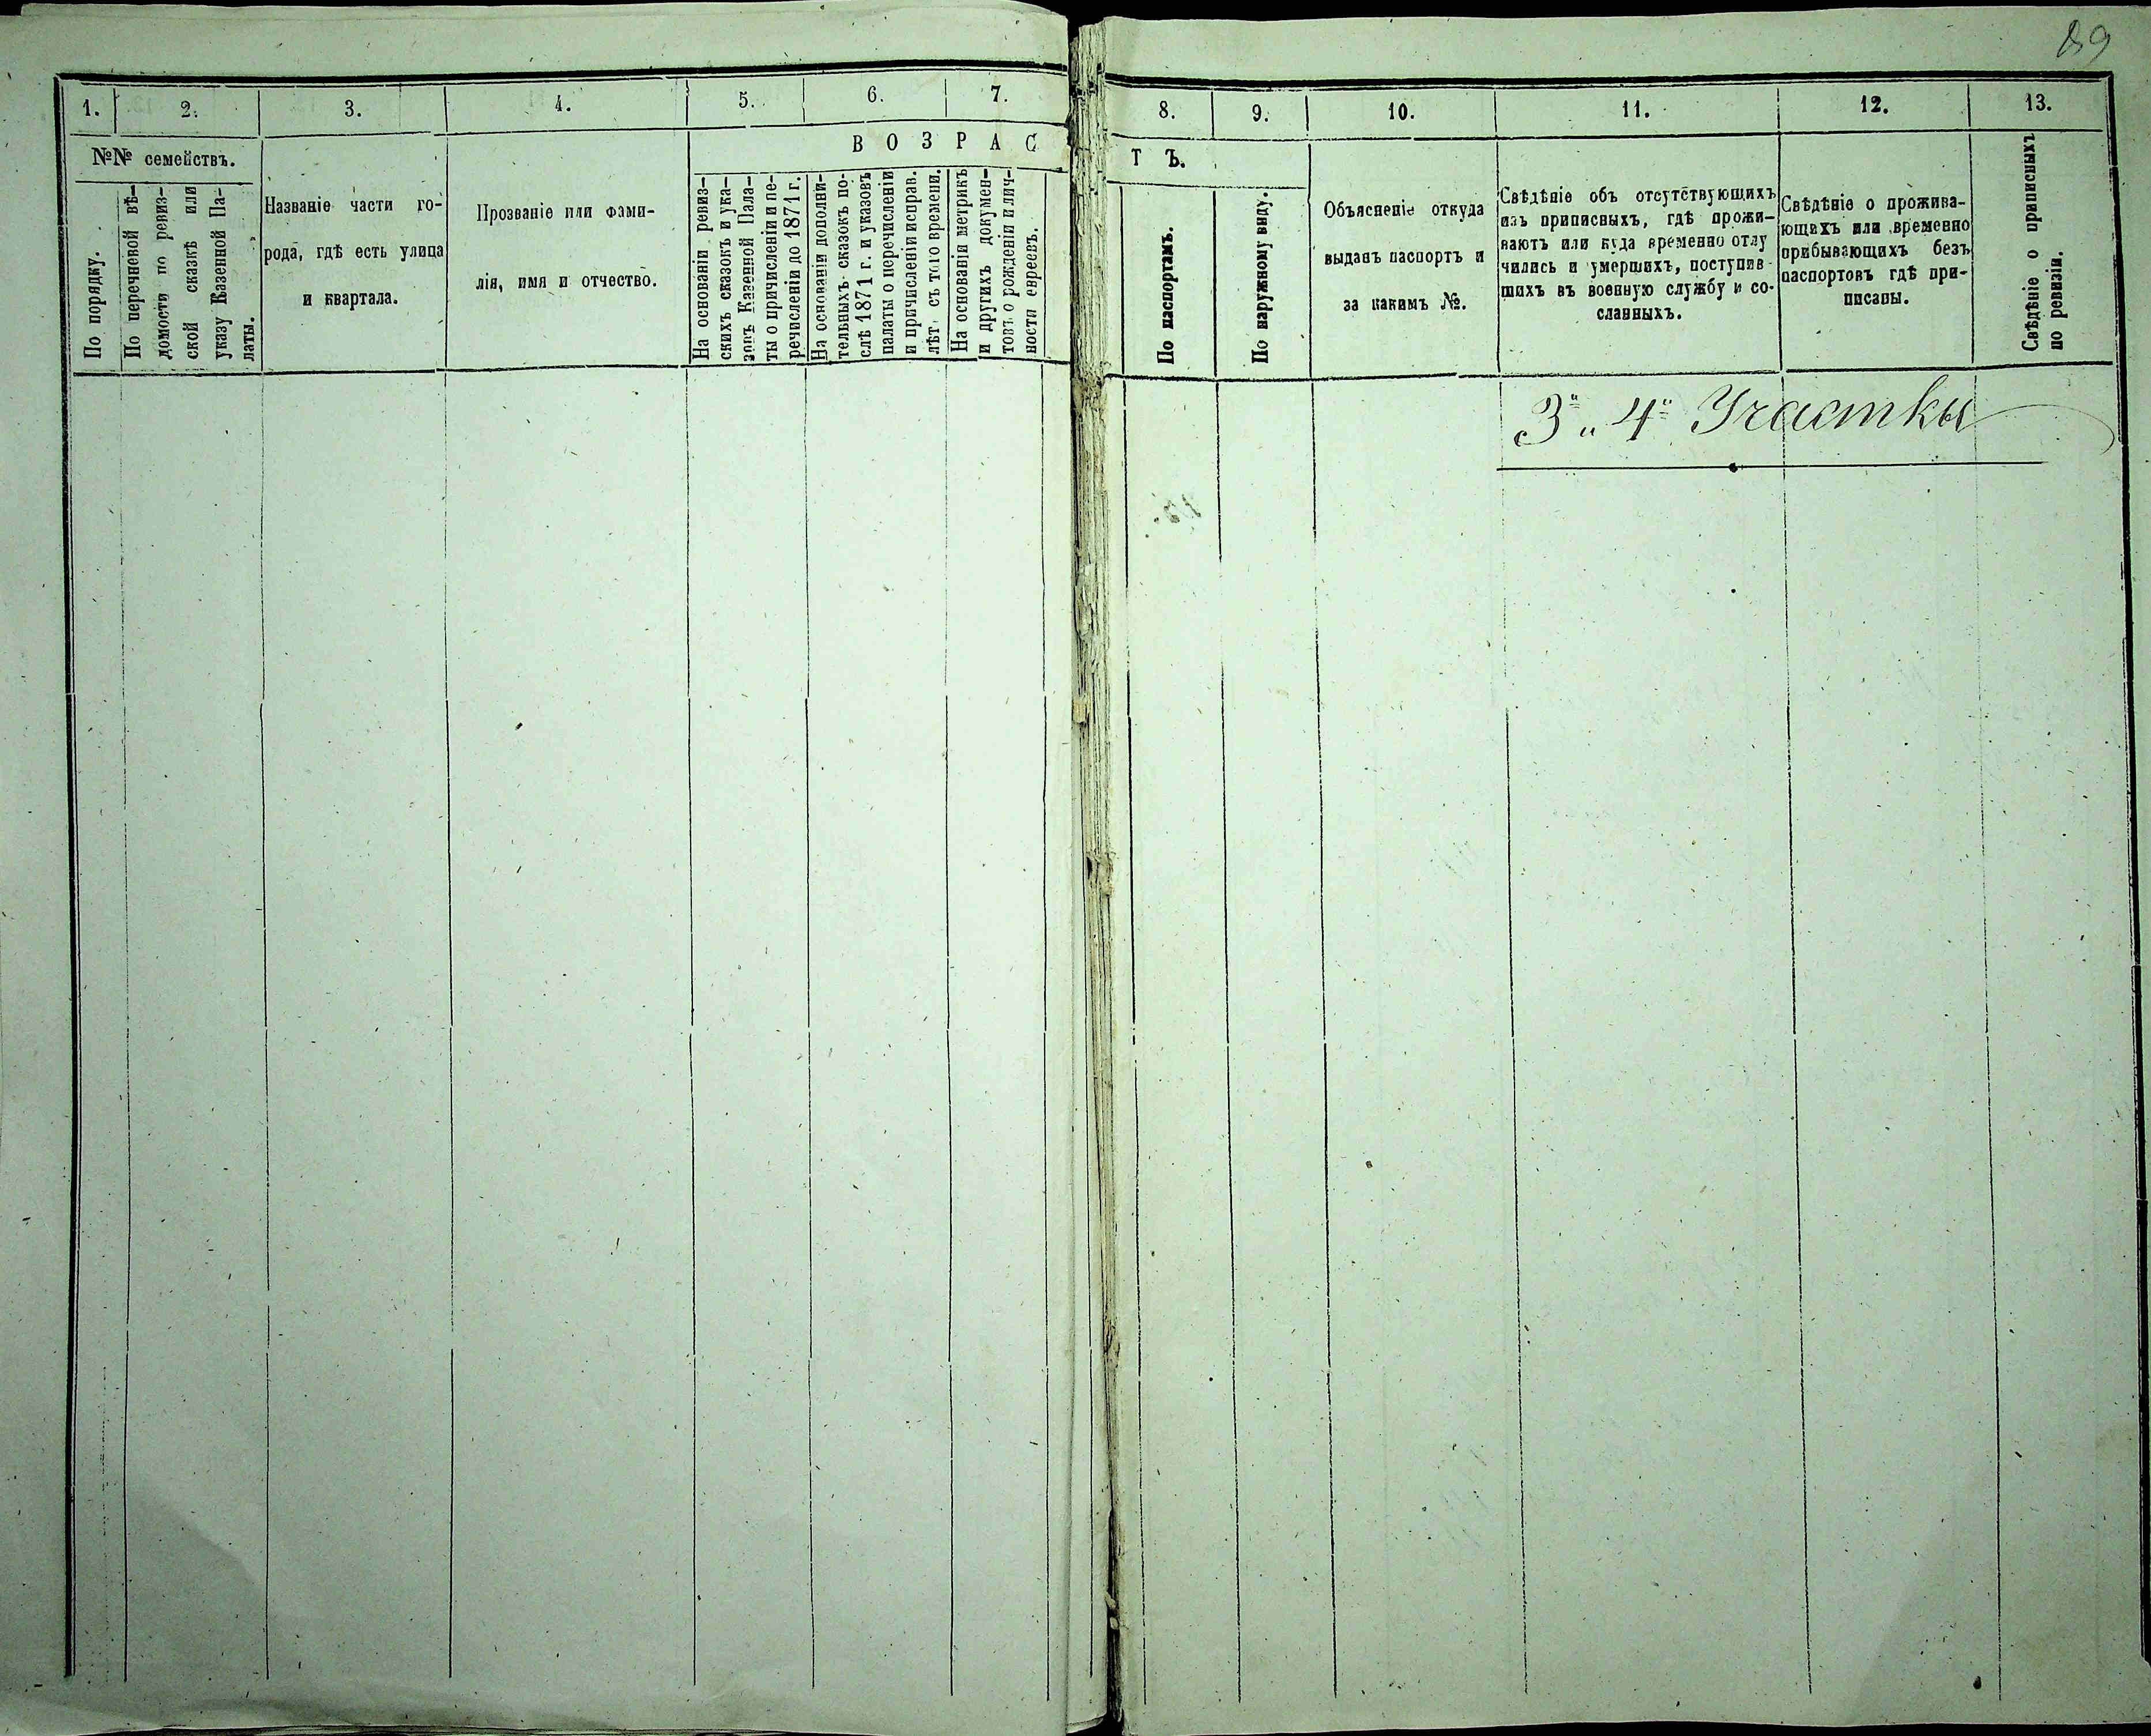 89
1.
2.
3.
4.
5.
6.
7.
8.
9.
10.
11.
12.
13.
№№ семействъ.
По порядку.
По перечновой вѣ-
домости по ревиз-
ской сказкѣ или
указу Казенной Па-
латы.
Названіе части го-
рода, гдѣ есть улица
и квартала.
Прозваніе или фами-
лія, имя и отчество.
ВОЗРАС
ТЪ.
На основаніи ревиз-
скихъ сказокъ и ука-
зовъ Казенной Пала-
ты о причисленіи и пе-
речисленіи до 1871 г.
На основаніи дополни-
тельныхъ сказокъ по-
слѣ 1871 г. и указовъ
палаты о перечисленіи
и причисленіи исправ.
лѣт. съ того времени.
На основаніи метрикъ
и другихъ докумен-
товъ о рожденіи и лич-
ности евреевъ.
По паспортамъ.
По наружному виду.
Объясненіе откуда
выданъ паспортъ и
за какимъ №.
Свѣдѣніе объ отсутствующихъ
изъ приписныхъ, гдѣ прожи-
ваютъ или куда временно отлу
чились и умершихъ, поступив-
шихъ въ военную службу и со-
сланныхъ.
Свѣдѣніе о прожива-
ющихъ или временно
прибывающихъ безъ
паспортовъ гдѣ при-
писаны.
Свѣдѣніе о приписныхъ
по ревизіи.
3й и 4й Участки